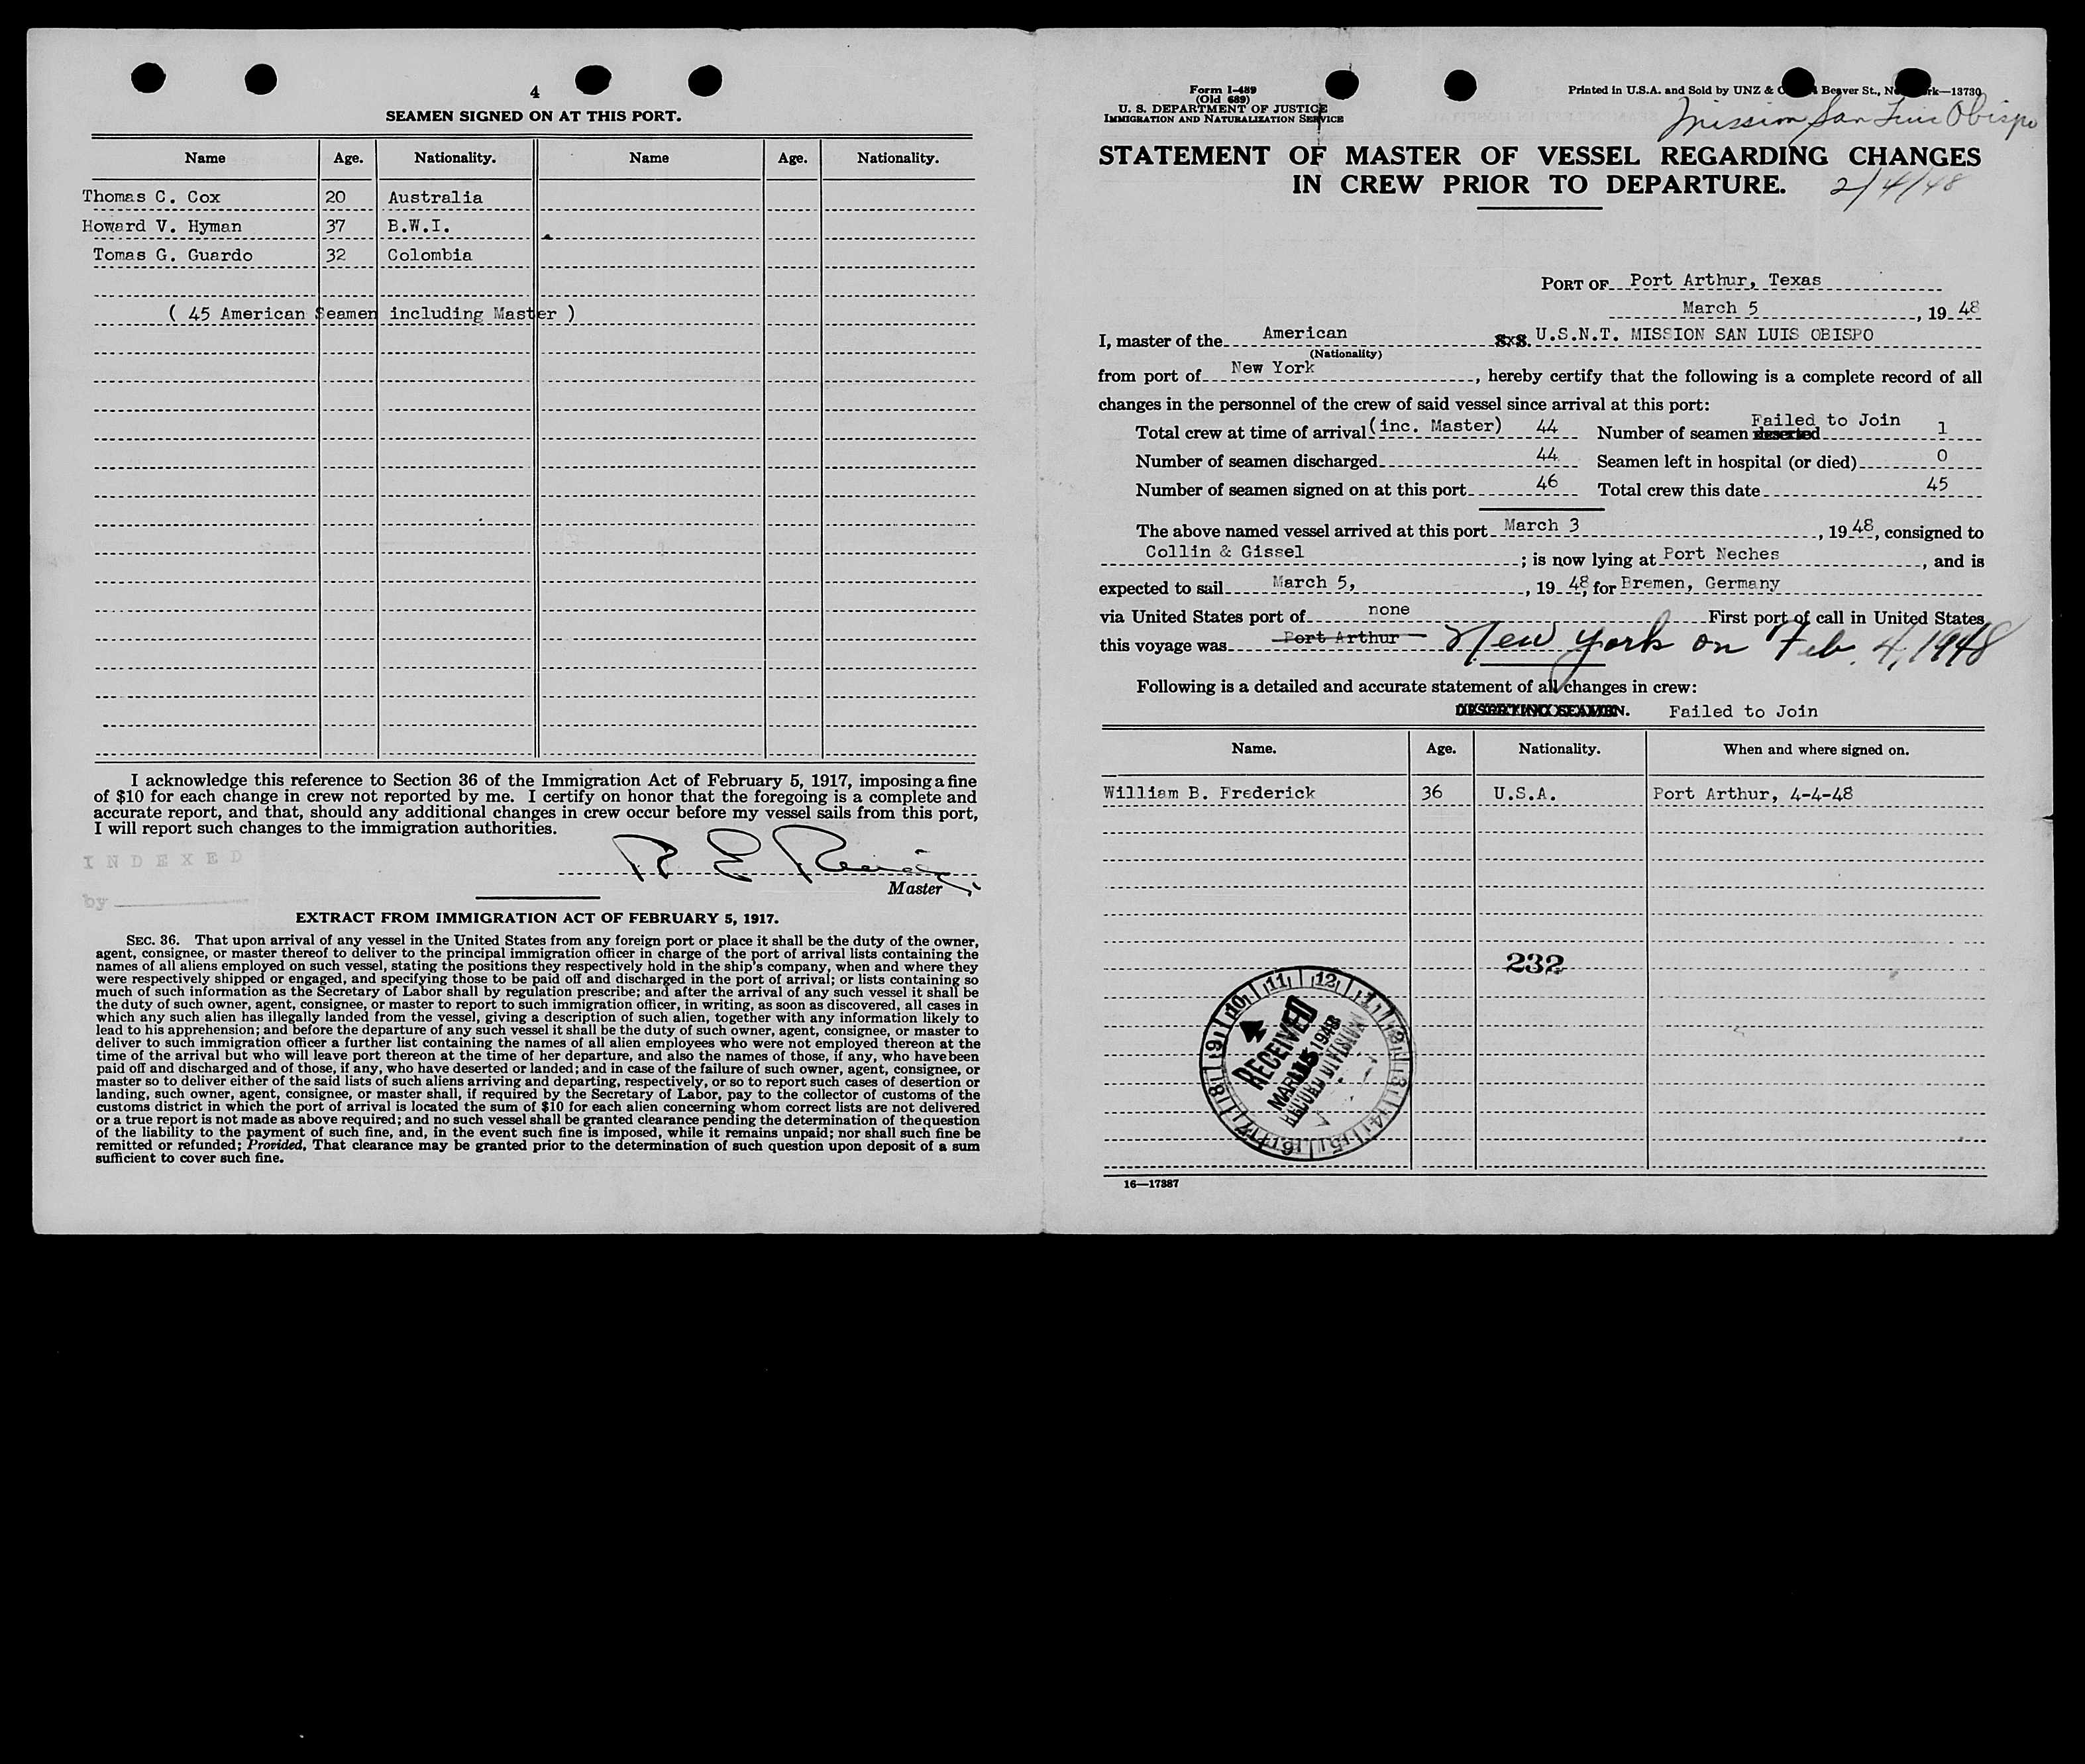 4
SEAMEN SIGNED ON AT THIS PORT.
Name Age. Nationality. Name Age. Nationality.
Thomas C. Cox 20 Australia
Howard V. Hyman 37 B.W.I.
Tomas G. Guardo 32 Colombia
( 45 American Seamen including Master )
I acknowledge this reference to Section 36 of the Immigration Act of February 5, 1917, imposing a fine
of $10 for each change in crew not reported by me. I certify on honor that the foregoing is a complete and
accurate report, and that, should any additional changes in crew occur before my vessel sails from this port,
I will report such changes to the immigration authorities.
INDEXED
R E
Master
by
EXTRACT FROM IMMIGRATION ACT OF FEBRUARY 5, 1917.
SEC. 36. That upon arrival of any vessel in the United States from any foreign port or place it shall be the duty of the owner,
agent, consignee, or master thereof to deliver to the principal immigration officer in charge of the port of arrival lists containing the
names of all aliens employed on such vessel, stating the positions they respectively hold in the ship's company, when and where they
were respectively shipped or engaged, and specifying those to be paid off and discharged in the port of arrival; or lists containing so
much of such information as the Secretary of Labor shall by regulation prescribe; and after the arrival of any such vessel it shall be
the duty of such owner, agent, consignee, or master to report to such immigration officer, in writing, as soon as discovered, all cases in
which any such alien has illegally landed from the vessel, giving a description of such alien, together with any information likely to
lead to his apprehension; and before the departure of any such vessel it shall be the duty of such owner, agent, consignee, or master to
deliver to such immigration officer a further list containing the names of all alien employees who were not employed thereon at the
time of the arrival but who will leave port thereon at the time of her departure, and also the names of those, if any, who have been
paid off and discharged and of those, if any, who have deserted or landed; and in case of the failure of such owner, agent, consignee, or
master so to deliver either of the said lists of such aliens arriving and departing, respectively, or so to report such cases of desertion or
landing, such owner, agent, consignee, or master shall, if required by the Secretary of Labor, pay to the collector of customs of the
customs district in which the port of arrival is located the sum of $10 for each alien concerning whom correct lists are not delivered
or a true report is not made as above required; and no such vessel shall be granted clearance pending the determination of the question
of the liability to the payment of such fine, and, in the event such fine is imposed, while it remains unpaid; nor shall such fine be
remitted or refunded; Provided, That clearance may be granted prior to the determination of such question upon deposit of a sum
sufficient to cover such fine.
Form I-489
(Old 689)
U. S. DEPARTMENT OF JUSTICE
IMMIGRATION AND NATURALIZATION SERVICE
Printed in U.S.A. and Sold by UNZ & Beaver St., 13730
Mission San Luis Obispo
STATEMENT OF MASTER OF VESSEL REGARDING CHANGES
IN CREW PRIOR TO DEPARTURE.
2/4/48
PORT OF Port Arthur, Texas
March 5, 1948
I, master of the American S.S. U.S.N.T. MISSION SAN LUIS OBISPO
(Nationality)
from port of New York, hereby certify that the following is a complete record of all
changes in the personnel of the crew of said vessel since arrival at this port:
Total crew at time of arrival (inc. Master) 44 Number of seamen deserted Failed to Join 1
Number of seamen discharged 44 Seamen left in hospital (or died) 0
Number of seamen signed on at this port 46 Total crew this date 45
The above named vessel arrived at this port March 3, 1948, consigned to
Collin & Gissel; is now lying at Port Neches, and is
expected to sail March 5, , 1948, for Bremen, Germany
via United States port of none First port of call in United States
this voyage was Port Arthur New York on Feb. 4, 1948
Following is a detailed and accurate statement of all changes in crew:
DESERTING SEAMEN. Failed to Join
Name. Age. Nationality. When and where signed on.
William B. Frederick 36 U.S.A. Port Arthur, 4-4-48
232
11 12 1 2 3 4 5 6 7 8 9 10
RECEIVED
MAR 15 1948
RECORD DIVISION
16—17387